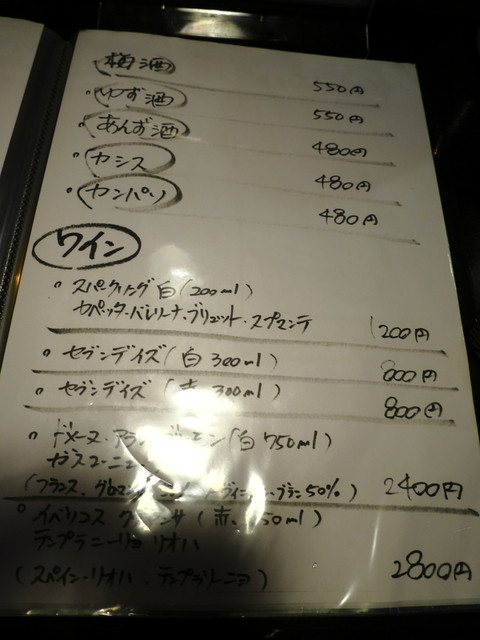 梅酒 550円
ゆず酒 550円
あんず酒 480円
カシス 480円
カンパリ 480円
ワイン
スパークリング 白(200ml)
カペッタ・バレリーナ・ブリュット・スプマンテ 1200円
セブンデイズ(白 300ml) 800円
セブンデイズ(赤 300ml) 800円
ドメーヌ・(白 750ml)
ガスコーニュ
(フランス、ブラン50%) 2400円
イベリコス (赤、750ml)
テンプラニーリョ リオハ
(スペイン・リオハ、テンプラリーニョ) 2800円